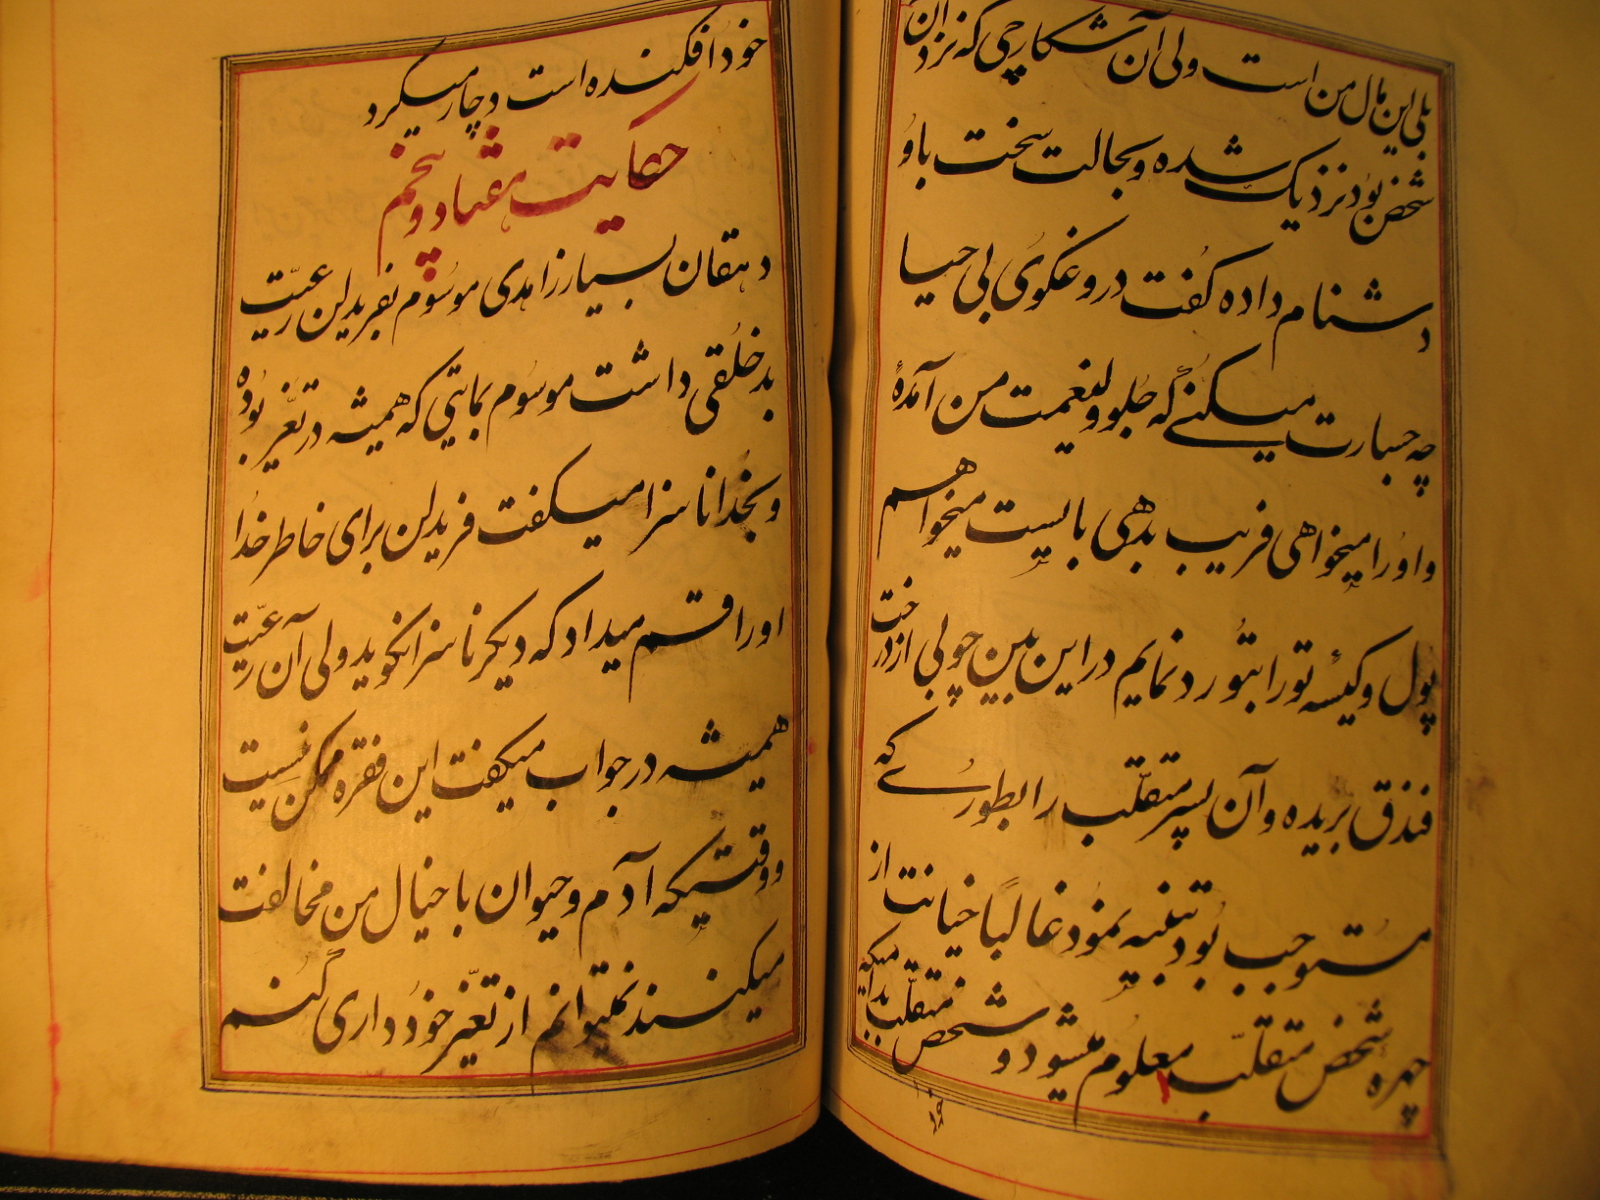 بلی این مال من است ولی آن شکارچی که نزد آن
شخص بود نزدیک شده و بحالت سخت باو
دشنام داده گفت دروغگوی بی حیا
چه جسارت میکنی که جلو ولینعمت من آمدهٔ
و اورا میخواهی فریب بدهی بایست میخواهم
پول و کیسه تورا بتو رد نمایم در این بین چوبی از درخت
فندق بریده و آن پسر متقلب را بطوری که
مستوجب بود تنبیه نمود غالباً خیانت از
چهره شخص متقلّب معلوم میشود و شخص متقلّب بدامیکه
خود افکنده است دچار میگردد
حکایت هفتاد و پنجم
دهقان بسیار زاهدی موسوم بفریدلن رعیّت
بدخلقی داشت موسوم بمایتی که همیشه در تغیّر بوده
و بخدا ناسزا میگفت فریدلن برای خاطر خدا
اورا قسم میداد که دیگر ناسزا نگوید ولی آن رعیّت
همیشه در جواب میگفت این فقره ممکن نیست
و وقتیکه آدم و حیوان با خیال من مخالفت
میکنند نمیتوانم از تغیّر خودداری کنم